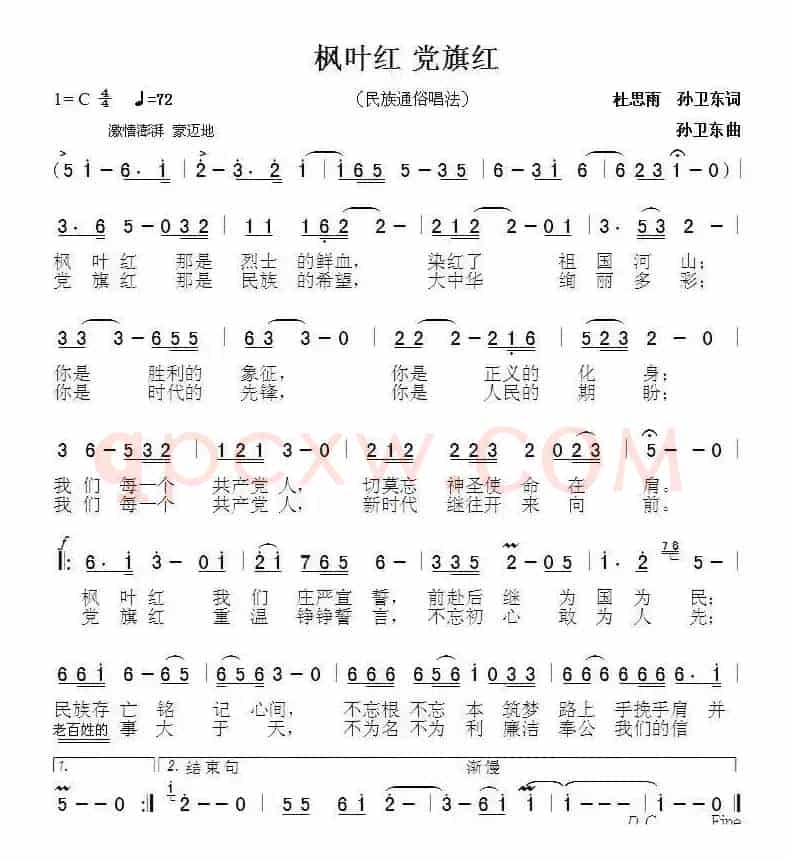 枫叶红 党旗红
1=C 4/4 ♩=72 （民族通俗唱法） 杜思雨 孙卫东词
激情澎湃 豪迈地 孙卫东曲
(5 1-6·1|2-3·2 1|165 5-35|6-31 6|623 1-0)|
3·6 5-032|11 162 2-|212 2-01|53 2-|
枫叶红 那是 烈士 的鲜血， 染红了 祖国河山；
党旗红 那是 民族 的希望， 大中华 绚丽多彩；
33 3-655|63 3-0|22 2-216|523 2-0|
你是 胜利的 象征， 你是 正义的 化身；
你是 时代的 先锋， 你是 人民的 期盼；
3 6-532|121 3-0|212 223 2 023|5--0|
qpcxw.COM
我们 每一个 共产党人， 切莫忘 神圣使命在肩。
我们 每一个 共产党人， 新时代 继往开来向前。
f
‖:6·1 3-01|21 765 6-|3355 2-05|1·2 76 5-|
枫叶红 我们 庄严宣誓， 前赴后继 为国为民；
党旗红 重温 铮铮誓言， 不忘初心 敢为人先；
661 6-65|56 3-0|356 561 033|666 666 6·1|
民族存亡铭记心间， 不忘根不忘本筑梦路上手挽手肩并
老百姓的事大于天， 不为名不为利廉洁奉公我们的信
1. 2. 结束句 渐慢
5--0:‖2--0|551 212|3-61 1-|1---|1--0‖
D.C. Fine